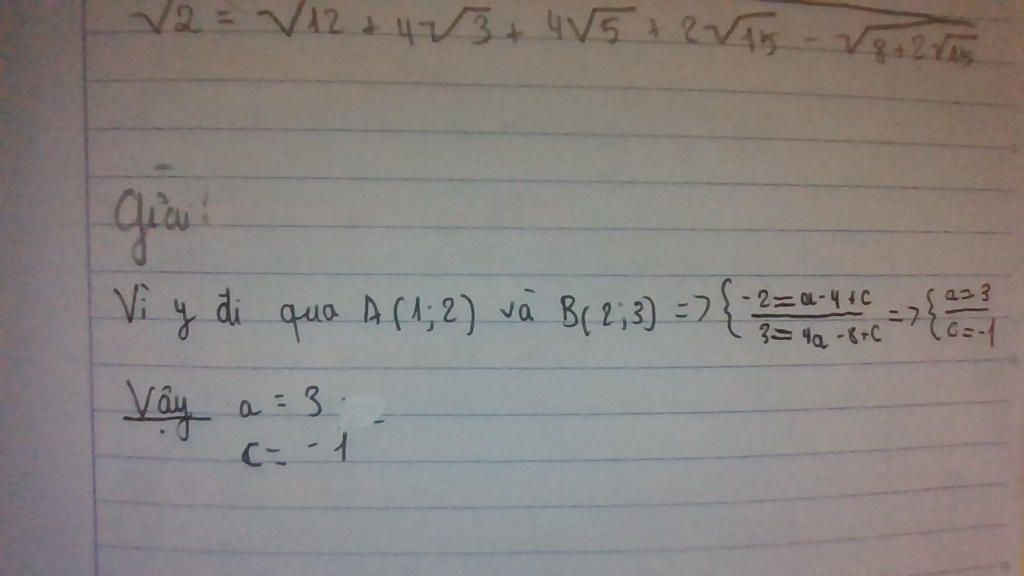 √2 = √12 + 4√3 + 4√5 + 2√15 - √8+2√15
Giải:
Vì y đi qua A(1;2) và B(2;3) => { -2=a-4+c 3=4a-8+c => { a=3 c=-1
Vậy a = 3
c= -1